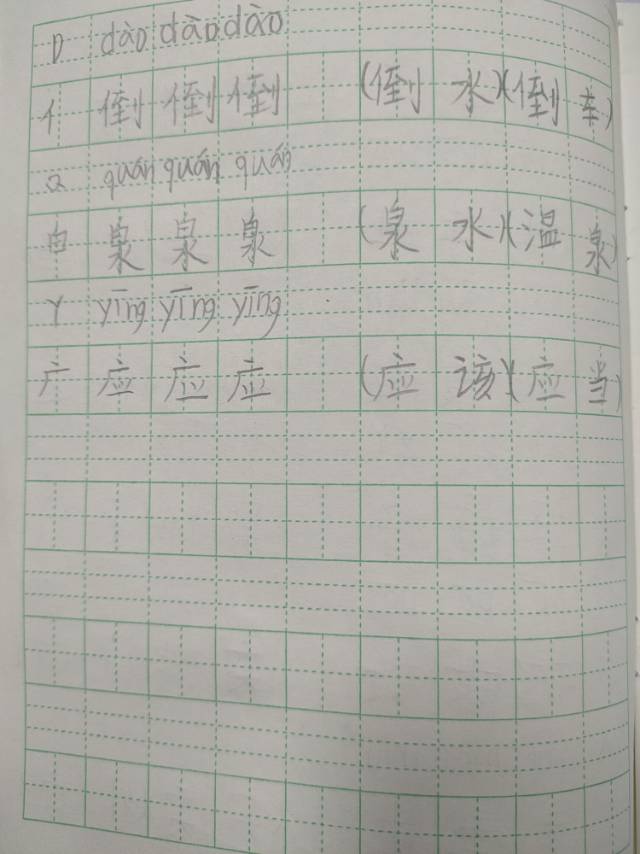 D dào dào dào
亻 倒 倒 倒 (倒 水)(倒 车)
Q quán quán quán
白 泉 泉 泉 (泉 水)(温 泉)
Y yīng yīng yīng
广 应 应 应 (应 该)(应 当)